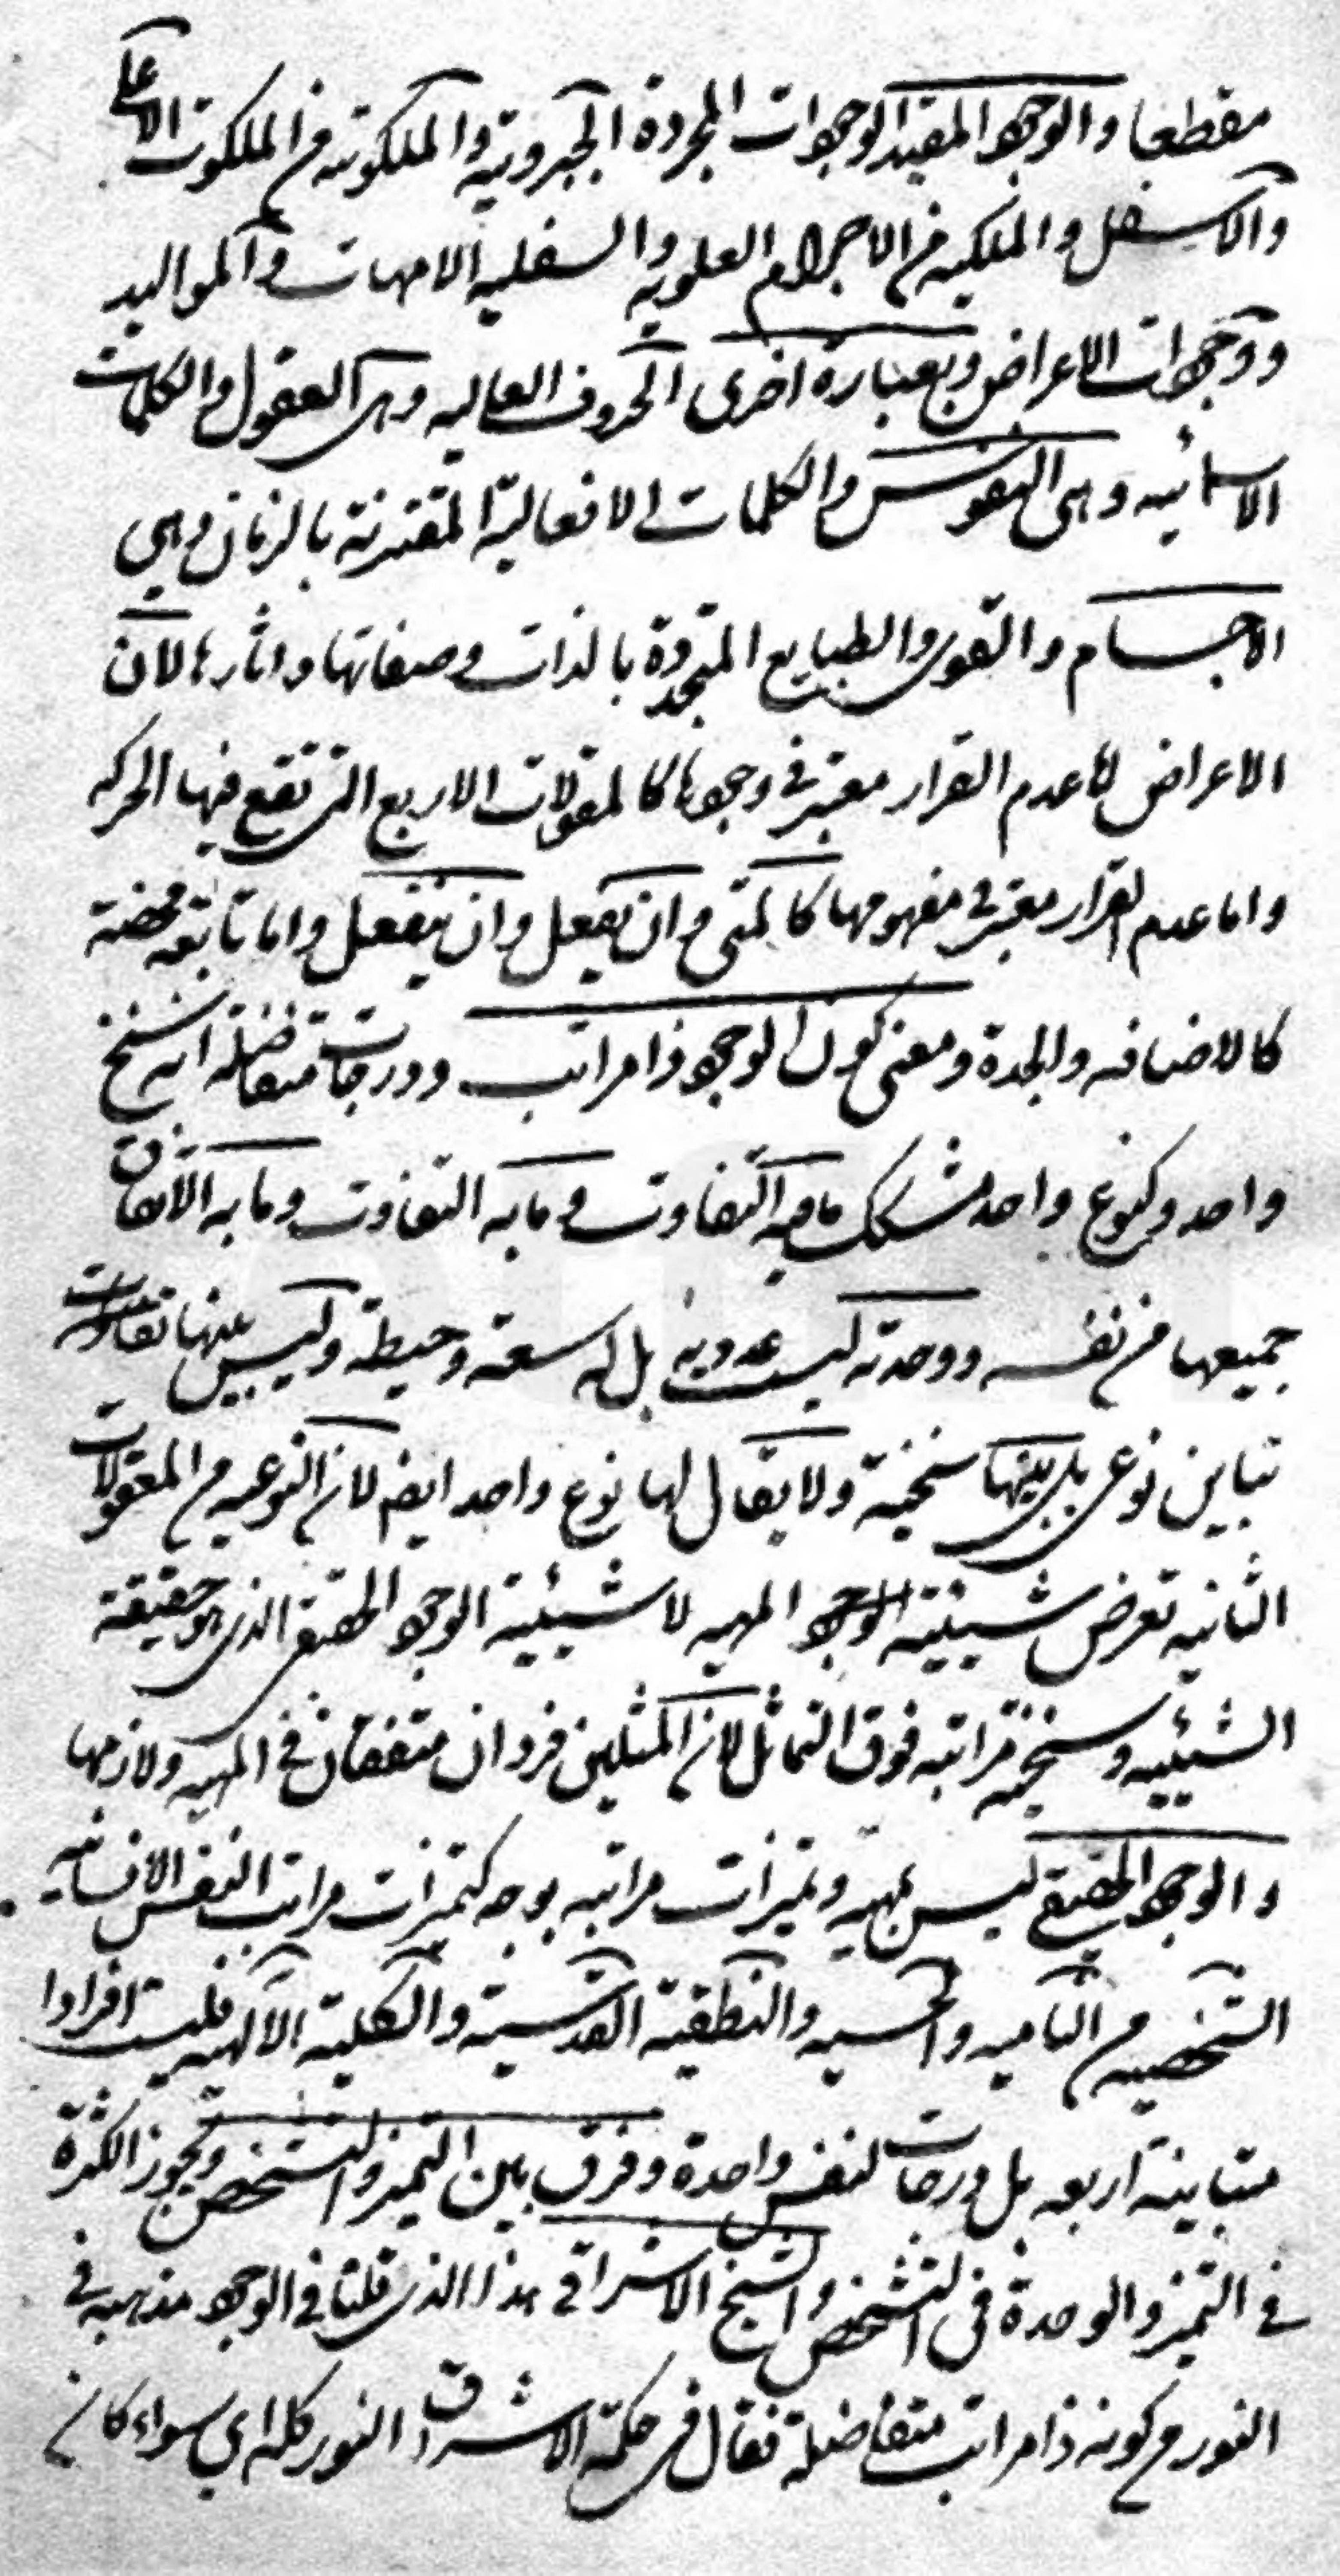 مقطعا والوجود المقيد الوجودات المجردة الجبروتية والملكوتيه من الملكوت الاعلى
والاسفل والملكيه من الاجرام العلويه والسفليه الامهات والمواليد
ووجودات الاعراض وبعبارة اخرى الحروف العاليه وهى العقول والكلمات
الاسمائيه وهى النفوس والكلمات الافعالية المقترنة بالزمان وهي
الاجسام والقوى والطبايع المتجددة بالذات وصفاتها واثارها لان
الاعراض اما عدم القرار معتبر في وجودها كالمقولات الاربع التى تقع فيها الحركه
واما عدم القرار معتبر في مفهومها كالمتى وان يفعل وان ينفعل واما تابعة محضة
كالاضافه والجدة ومعنى كون الوجود ذا مراتب ودرجات متفاضلة انه سنخ
واحد وكنوع واحد مشكك ما فيه التفاوت وما به التفاوت وما به الاتفاق
جميعها من نفسه ووحدته ليست عدديه بل له سعة وحيطة وليس بينها تفاوت
تباين نوعى بل بينها سنخية ولا يقال لها نوع واحد ايضا لان النوعيه من المعقولات
الثانيه تعرض شيئية الوجود المهيه لا شيئية الوجود الحقيقى الذى هو حقيقة
الشيئيه وسنخيه مراتبه فوق التماثل لان المثلين فردان متفقان في المهيه ولازمها
والوجود الحقيقي ليس بمهيه وتميزات مراتبه بوجه كتميزات مراتب النفس الانسانيه
الشخصيه من الناميه والحسيه والنطقية القدسية والكلية الالهيه فليست افرادا
متباينة اربعه بل درجات لنفس واحدة وفرق بين التميز والتشخص وتجوز الكثرة
في التميز والوحدة في التشخص والشيخ الاشراقي هذا الذى قلنا في الوجود مذهبه في
النور من كونه ذا مراتب متفاضلة فقال فى حكمة الاشراق النور كله اي سواء كان